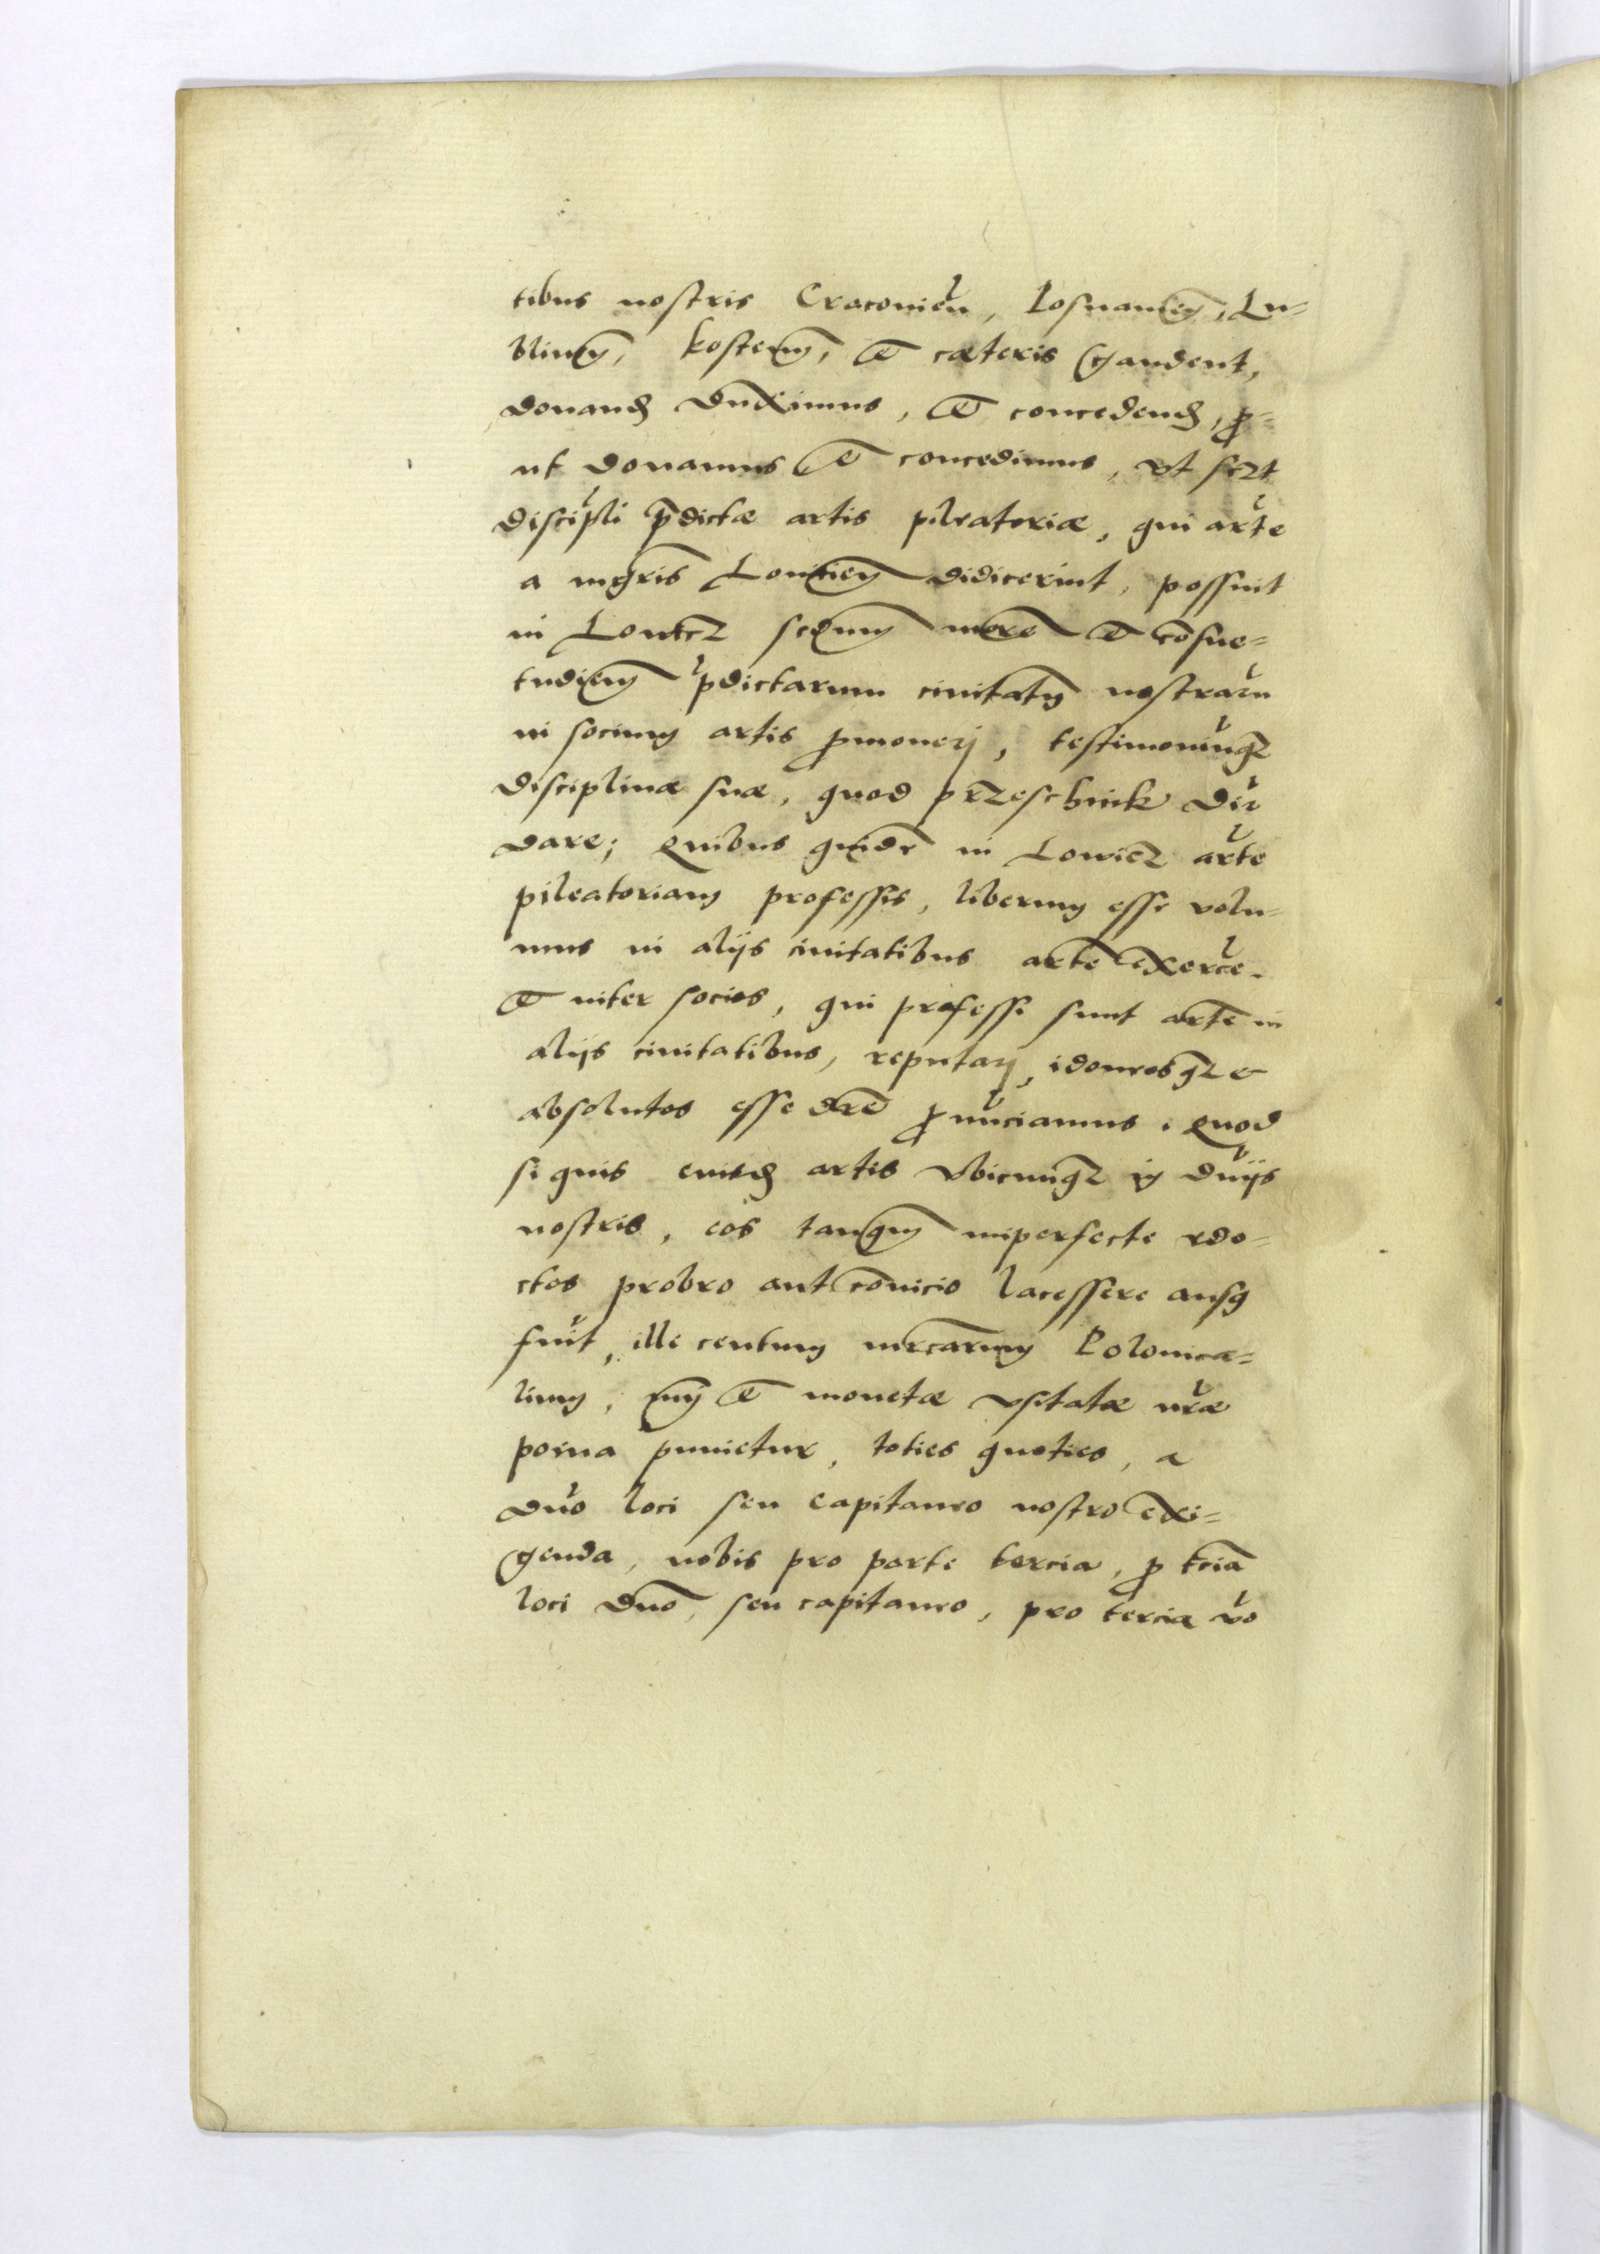 tibus nostris Cracovień, Posnanień, Lu-
blineń, Kosteneń, et cæteris gaudent,
donand duximus, et concedend, pro-
ut donamus et concedimus, vt
discipli p̄dictæ artis pileatoriæ, qui arte
a mgris Lovicień didicerint, possint
in Lovicz scdum more et cōsue-
tudiem p̄dictarum civitatum nostraru
in socium artis promoveri, testimoniumqz
disciplinæ suæ, quod przeschink dir
dare; Quibus quidē in Lowicz arte
pileatoriam professis, liberum esse volu-
mus in alijs civitatibus artē exerce.
et inter socios, qui professi sunt artē in
alijs civitatibus, reputarj, idoneosqz et
absolutos esse drē pronūciamus. Quod
si quis eiusd artis vbicunqz in dnijs
nostris, eos tanqm imperfecte edo-
ctos probro aut cōvicio lacessere ausq
fuit, ille centum mrcarum Polonica-
lium, et monetæ vsitatæ nræ
poena punietur, toties quoties, a
dno loci seu capitaneo nostro exi-
genda, nobis pro parte tercia, pro tciā
loci dnō, seu capitaneo, pro tercia vo